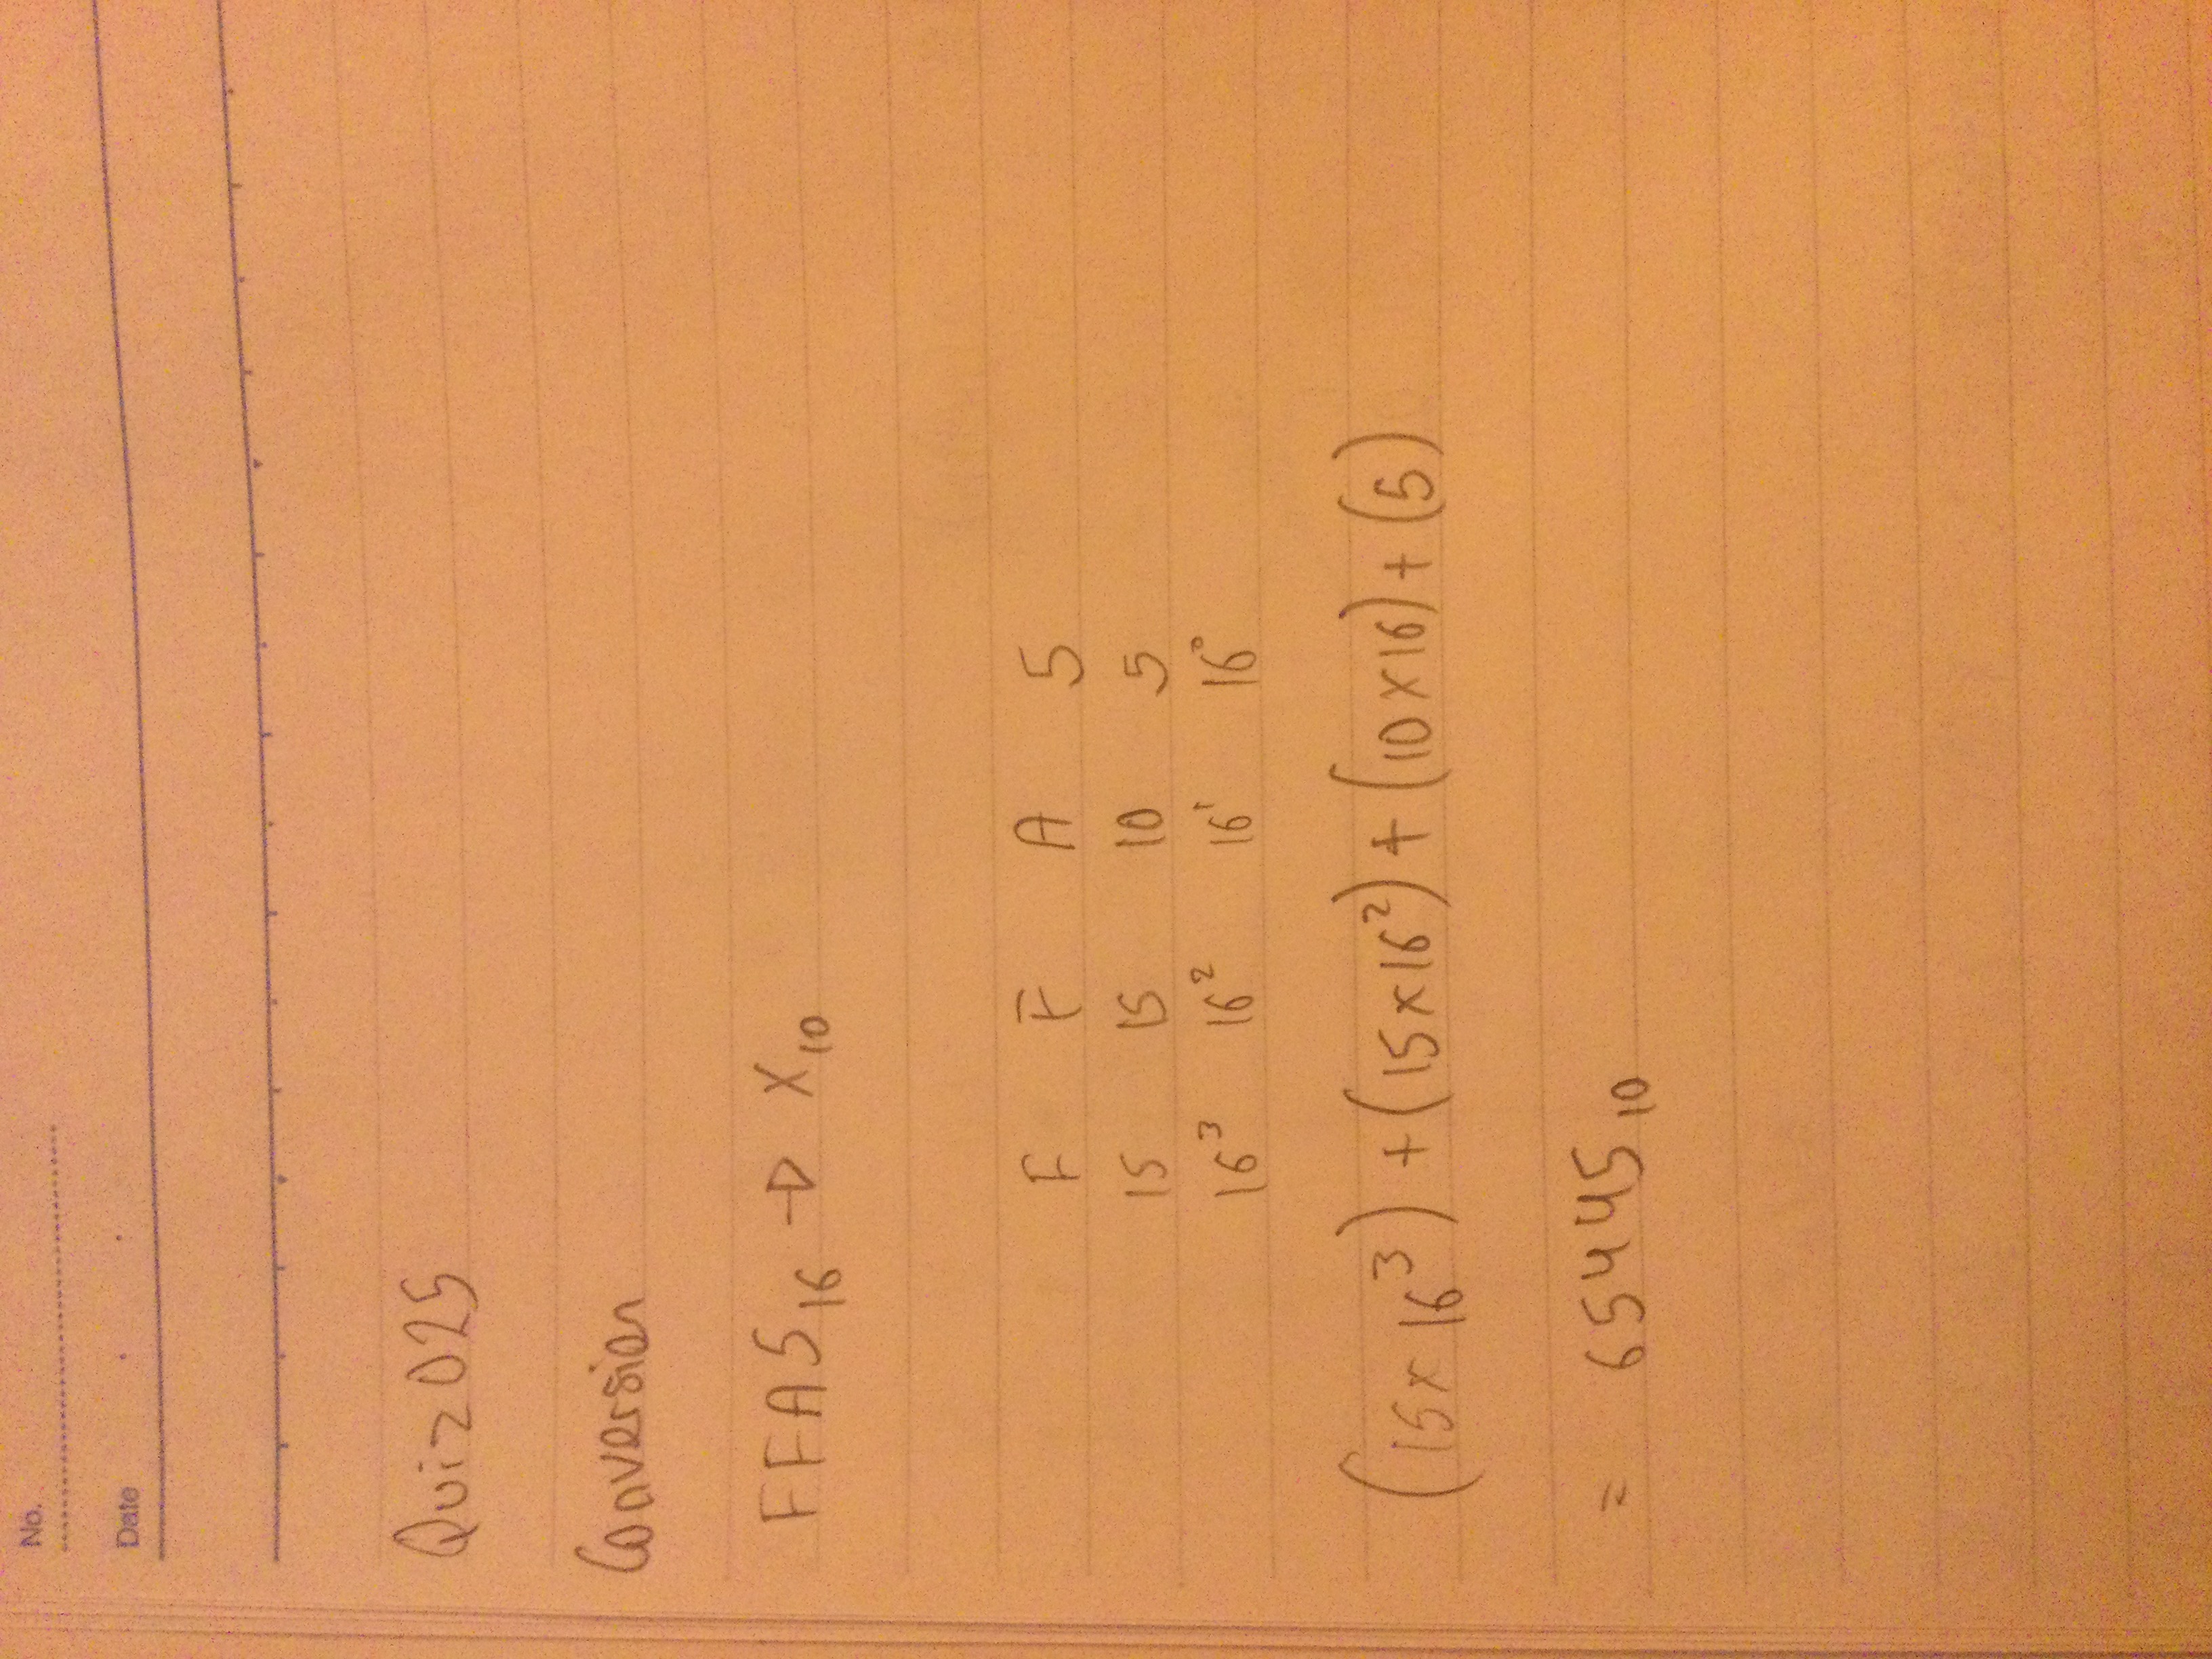 No.
Date
Quiz 025
Conversion
FFA5₁₆ → X₁₀
F F A 5
15 15 10 5
16³ 16² 16¹ 16⁰
(15 x 16³) + (15 x 16²) + (10 x 16) + (5)
= 65445₁₀